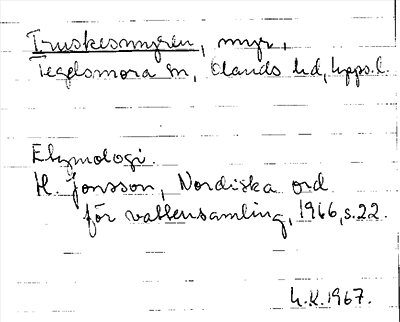 Truskesmyren, myr,
Tegelsmora sn, Olands hd, Upps. l.
Etymologi.
H. Jonsson, Nordiska ord
för vattensamling, 1966, s. 22.
h.K. 1967.